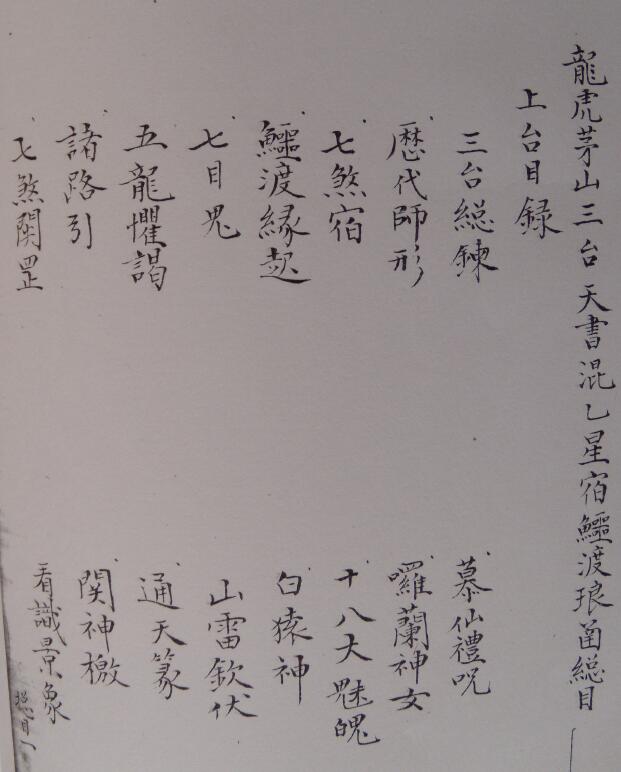 龍虎茅山三台天書混乙星宿鱷渡琅函總目
上台目録
三台総錬
慕仙禮呪
歴代師形
囉蘭神女
七煞宿
十八大魅魄
鱷渡縁起
白猿神
七目鬼
山雷欽伏
五龍懼謁
通天篆
諸路引
関神檄
七煞関罡
看識景象
総目一